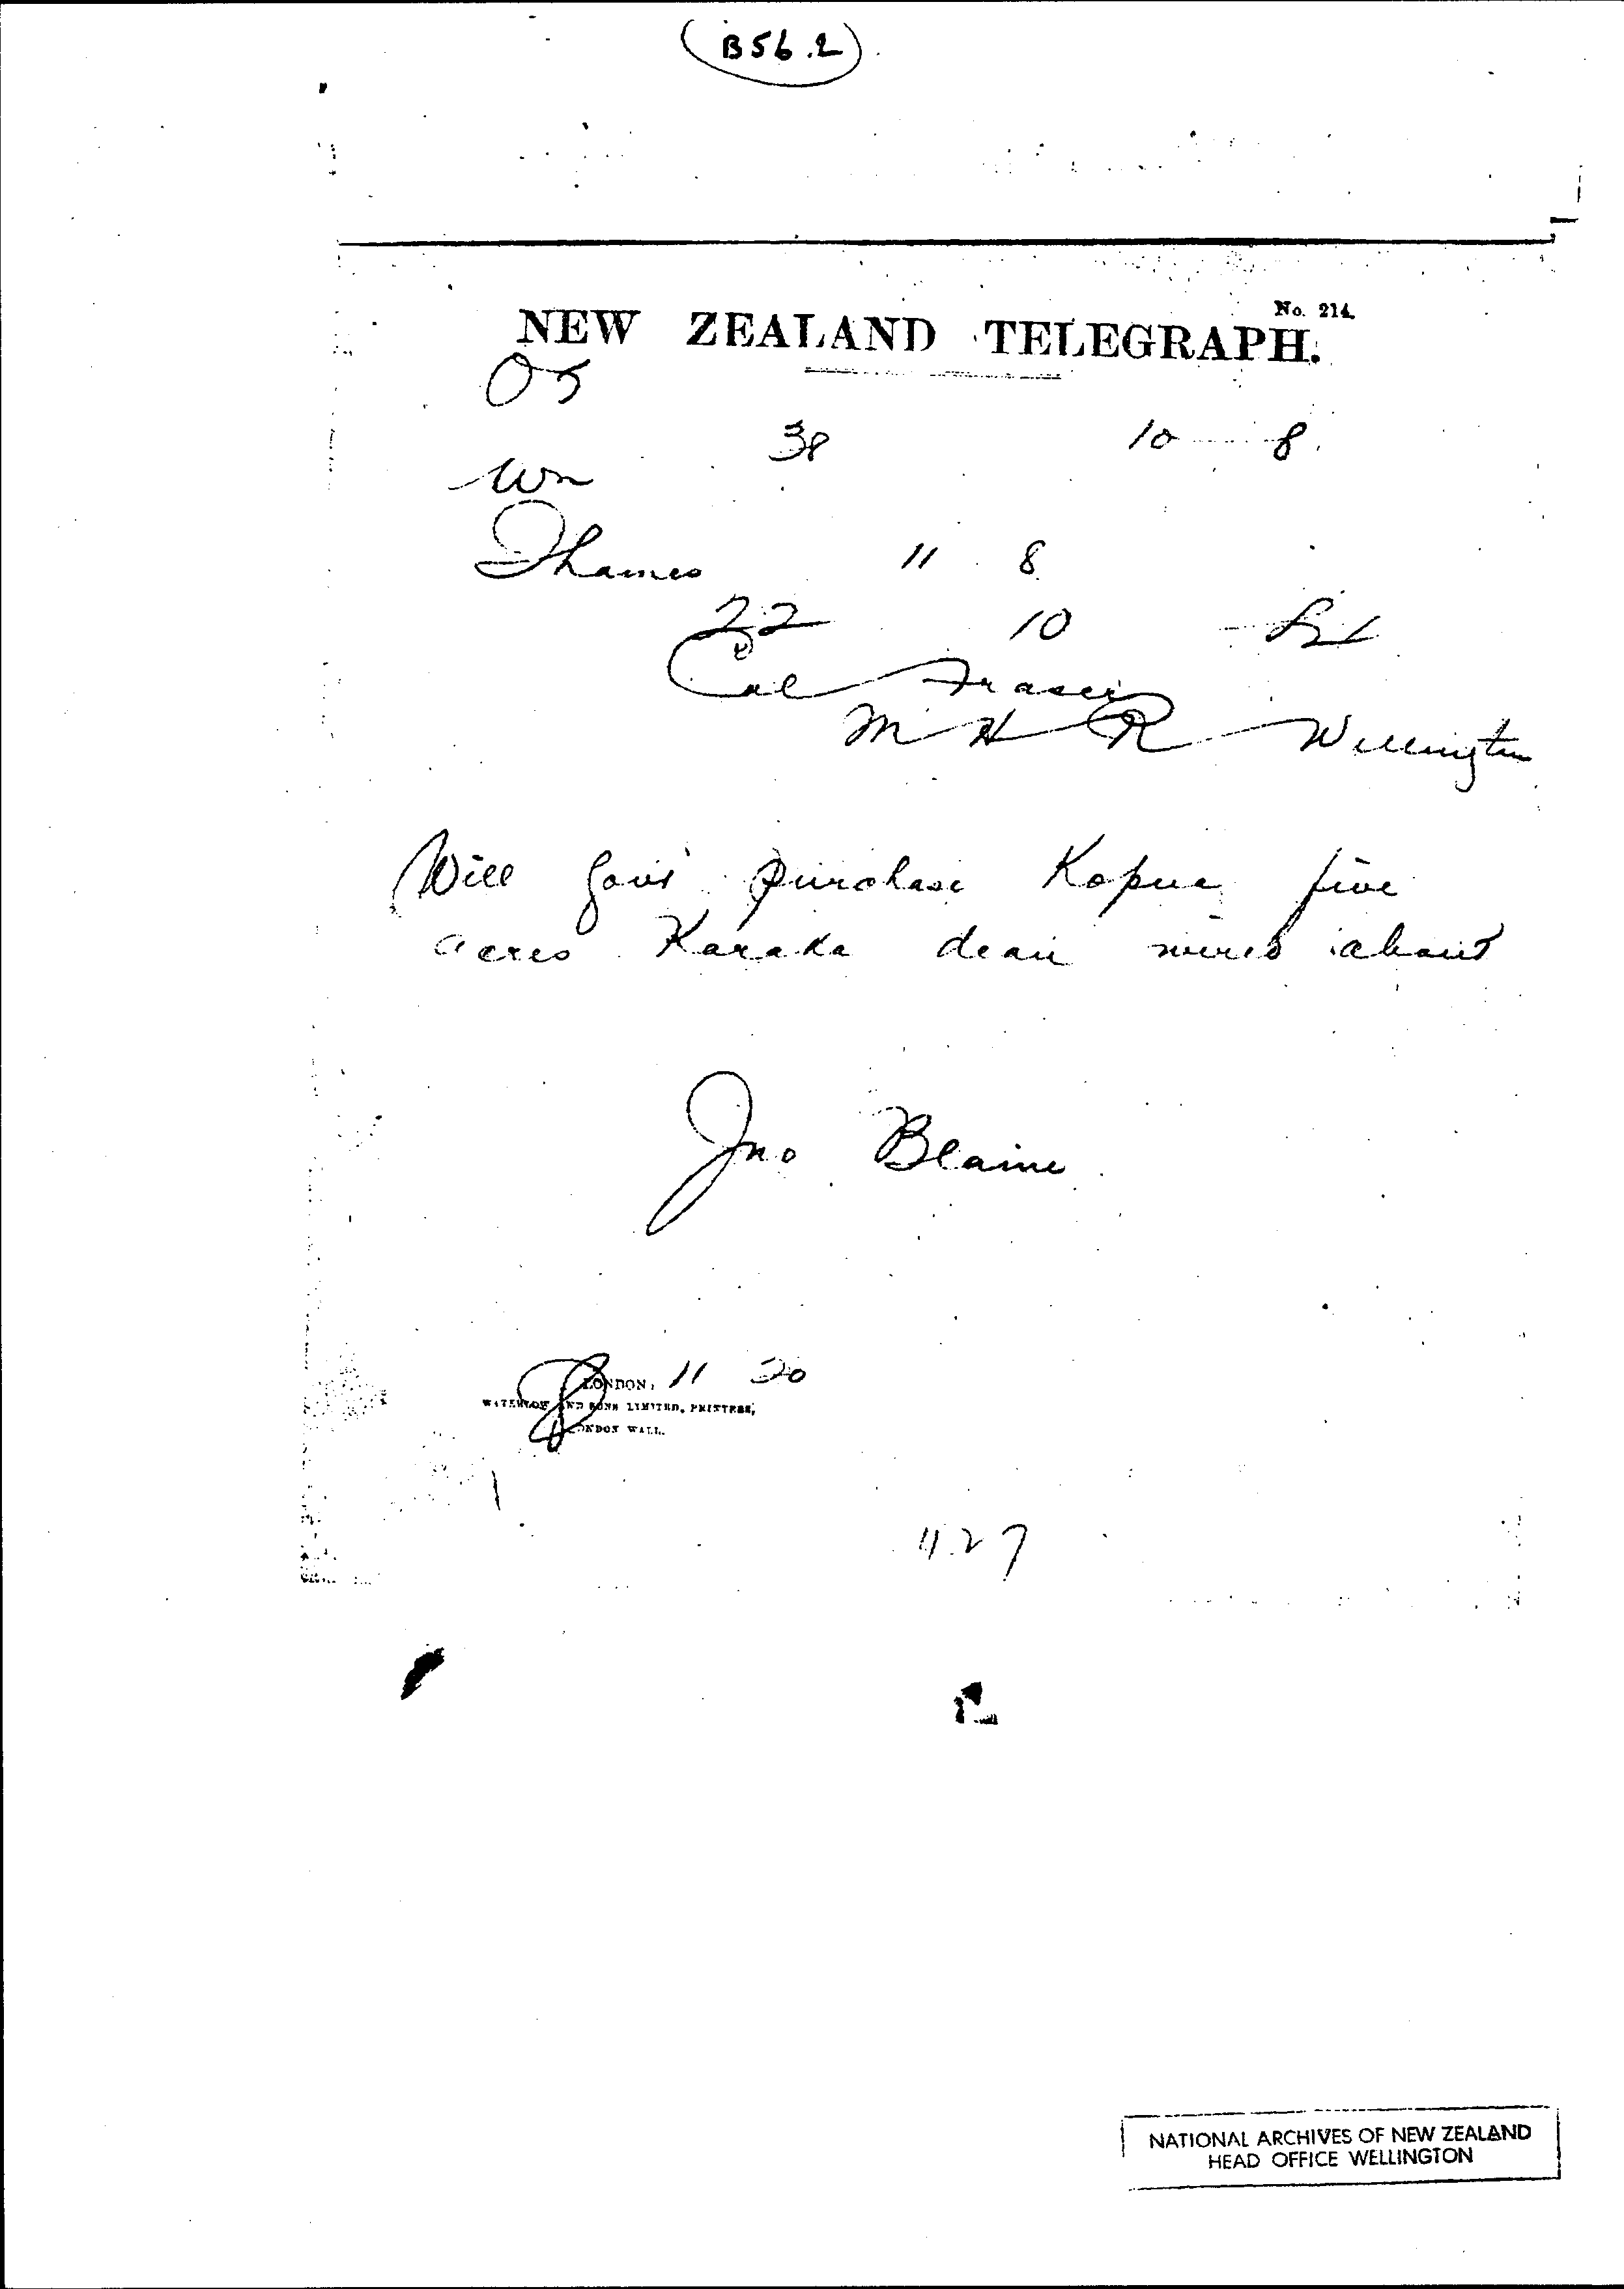 B56.2
No. 214.
NEW ZEALAND TELEGRAPH.
OS
38 10 8
Wn
Thames 11 8
22 10
Col Fraser
M H R Wellington
Will Govt purchase Kopua five
acres Karaka dean wired about
Jno Blaine
LONDON, 11 30
WATERLOW AND SONS LIMITED, PRINTERS,
LONDON WALL.
11.27
NATIONAL ARCHIVES OF NEW ZEALAND
HEAD OFFICE WELLINGTON